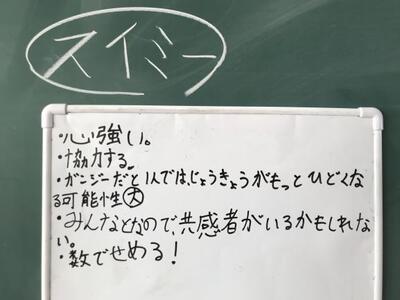 スイミー
・心強い。
・協力する。
・ガンジーだと1人では、じょうきょうがもっとひどくな
る可能性大
・みんなとなので、共感者がいるかもしれな
い。
・数でせめる！